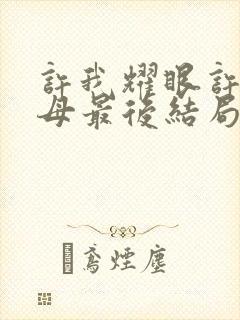 許我耀眼許
母最後結局
鳶煙塵